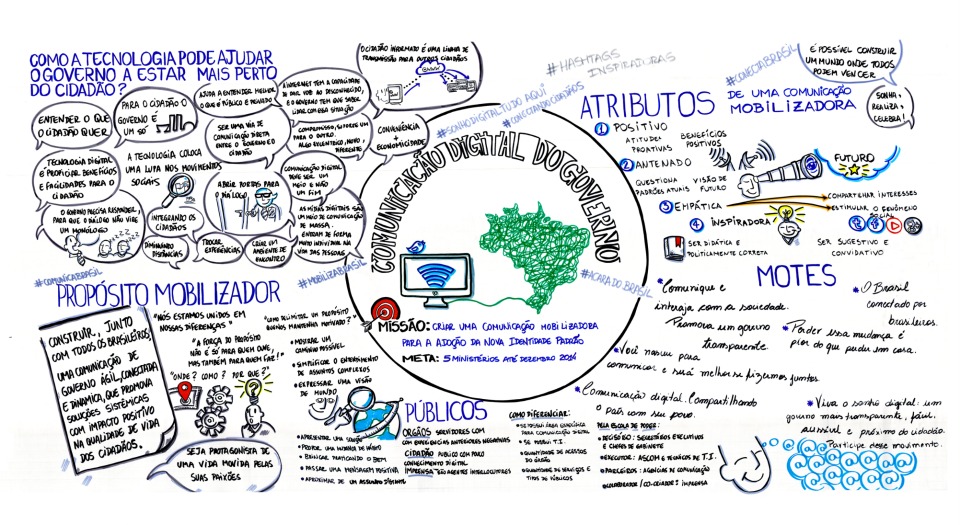 COMO A TECNOLOGIA PODE AJUDAR
O GOVERNO A ESTAR MAIS PERTO
DO CIDADÃO?
O CIDADÃO INFORMATO É UMA LINHA DE
TRANSMISSÃO PARA OUTROS CIDADÃOS
ENTENDER O QUE
O CIDADÃO QUER
PARA O CIDADÃO O
GOVERNO É
UM SÓ
AJUDA A ENTENDER MELHOR
O QUE É PÚBLICO E PRIVADO
A INTERNET TEM A CAPACIDADE
DE DAR VOZ AO DESCONHECIDO,
E O GOVERNO TEM QUE SABER
LIDAR COM ESSA SITUAÇÃO
SER UMA VIA DE
COMUNICAÇÃO DIRETA
ENTRE O GOVERNO E O
CIDADÃO
COMPROMISSO,
PARA O OUTRO.
ALGO EXCÊNTRICO, NOVO,
DIFERENTE
CONVENIÊNCIA
+
ECONOMICIDADE
TECNOLOGIA DIGITAL
É PROFICIAR BENEFÍCIOS
E FACILIDADES PARA O
CIDADÃO
A TECNOLOGIA COLOCA
UMA LUPA NOS MOVIMENTOS
SOCIAIS
ABRIR PORTAS PARA
O DIÁLOGO
COMUNICAÇÃO DIGITAL
DEVE SER UM
MEIO E NÃO
UM FIM
O GOVERNO PRECISA RESPONDER,
PARA QUE O DIÁLOGO NÃO VIRE
UM MONÓLOGO
INTEGRANDO OS
CIDADÃOS
AS MÍDIAS DIGITAIS SÃO
UM MEIO DE COMUNICAÇÃO
DE MASSA.
ENTRAM DE FORMA
MUITO INDIVIDUAL NA
VIDA DAS PESSOAS
DIMINUINDO
DISTÂNCIAS
TROCAR
EXPERIÊNCIAS
CRIAR UM
AMBIENTE DE
ENCONTRO
#COMUNICABRASIL
#MOBILIZABRASIL
#HASHTAGS
INSPIRADORAS
#SONHODIGITAL
TUDO AQUI
#CONECTANDOCIDADÃOS
#CONECTABRASIL
#ACARADOBRASIL
COMUNICAÇÃO DIGITAL DO GOVERNO
MISSÃO: CRIAR UMA COMUNICAÇÃO MOBILIZADORA
PARA A ADOÇÃO DA NOVA IDENTIDADE PADRÃO
META: 5 MINISTÉRIOS ATÉ DEZEMBRO 2014
ATRIBUTOS
DE UMA COMUNICAÇÃO
MOBILIZADORA
É POSSÍVEL CONSTRUIR
UM MUNDO ONDE TODOS
PODEM VENCER
SONHA,
REALIZA,
CELEBRA!
1 POSITIVO
ATITUDES
PROATIVAS
BENEFÍCIOS
POSITIVOS
2 ANTENADO
QUESTIONA
PADRÕES ATUAIS
VISÃO DE
FUTURO
FUTURO
3 EMPÁTICA
COMPARTILHAR INTERESSES
ESTIMULAR O FENÔMENO
SOCIAL
4 INSPIRADORA
SER DIDÁTICA E
POLITICAMENTE CORRETA
SER SUGESTIVO E
CONVIDATIVO
PROPÓSITO MOBILIZADOR
CONSTRUIR, JUNTO
COM TODOS OS BRASILEIROS,
UMA COMUNICAÇÃO DE
GOVERNO ÁGIL, CONECTADA
E DINÂMICA, QUE PROMOVA
SOLUÇÕES SISTÊMICAS
COM IMPACTO POSITIVO
NA QUALIDADE DE VIDA
DOS CIDADÃOS.
"NÓS ESTAMOS UNIDOS EM
NOSSAS DIFERENÇAS"
"A FORÇA DO PROPÓSITO
NÃO É SÓ PARA QUEM QUE,
MAS TAMBÉM PARA QUEM FAZ!"
"ONDE? COMO? POR QUE?"
SEJA PROTAGONISTA DE
UMA VIDA MOVIDA PELAS
SUAS PAIXÕES
"COMO DELIMITAR UM PROPÓSITO
QUE NOS MANTENHA MOTIVADO?"
• MOSTRAR UM
CAMINHO POSSÍVEL
• SIMPLIFICAR O ENTENDIMENTO
DE ASSUNTOS COMPLEXOS
• EXPRESSAR UMA VISÃO
DE MUNDO
• APRESENTAR UMA SOLUÇÃO
• PROPOR UMA MUDANÇA DE HÁBITO
• BRINCAR PRATICANDO O BEM
• PASSAR UMA MENSAGEM POSITIVA
• APROXIMAR DE UM ASSUNTO DISTANTE
PÚBLICOS
ORGÃOS SERVIDORES COM
EXPERIÊNCIAS ANTERIORES NEGATIVAS
CIDADÃO PÚBLICO COM POUCO
CONHECIMENTO DIGITAL
IMPRENSA SÃO AGENTES INTERLOCUTORES
COMO DIFERENCIAR:
• SE POSSUI ÁREA ESPECÍFICA
PARA COMUNICAÇÃO DIGITAL
• SE POSSUI T.I.
• QUANTIDADE DE ACESSOS
DO ÓRGÃO
• QUANTIDADE DE SERVIÇOS E
TIPOS DE PÚBLICOS
PELA ESCALA DE PODER:
• DECISÓRIO: SECRETÁRIOS EXECUTIVOS
E CHEFES DE GABINETE
• EXECUTOR: ASCOM E TÉCNICOS DE T.I.
• PARCEIROS: AGÊNCIAS DE COMUNICAÇÃO
• COLABORADOR/CO-CRIADOR: IMPRENSA
MOTES
* Comunique e
interaja com a sociedade.
Promova um governo
transparente.
* O Brasil
conectado por
brasileiros.
* Poder essa mudança é
pior do que perder em casa.
* Você nasceu para
comunicar e será melhor se fizermos juntos.
* Comunicação digital. Compartilhando
o país com seu povo.
* Viva o sonho digital: um
governo mais transparente, fácil,
acessível e próximo do cidadão.
Participe desse movimento.